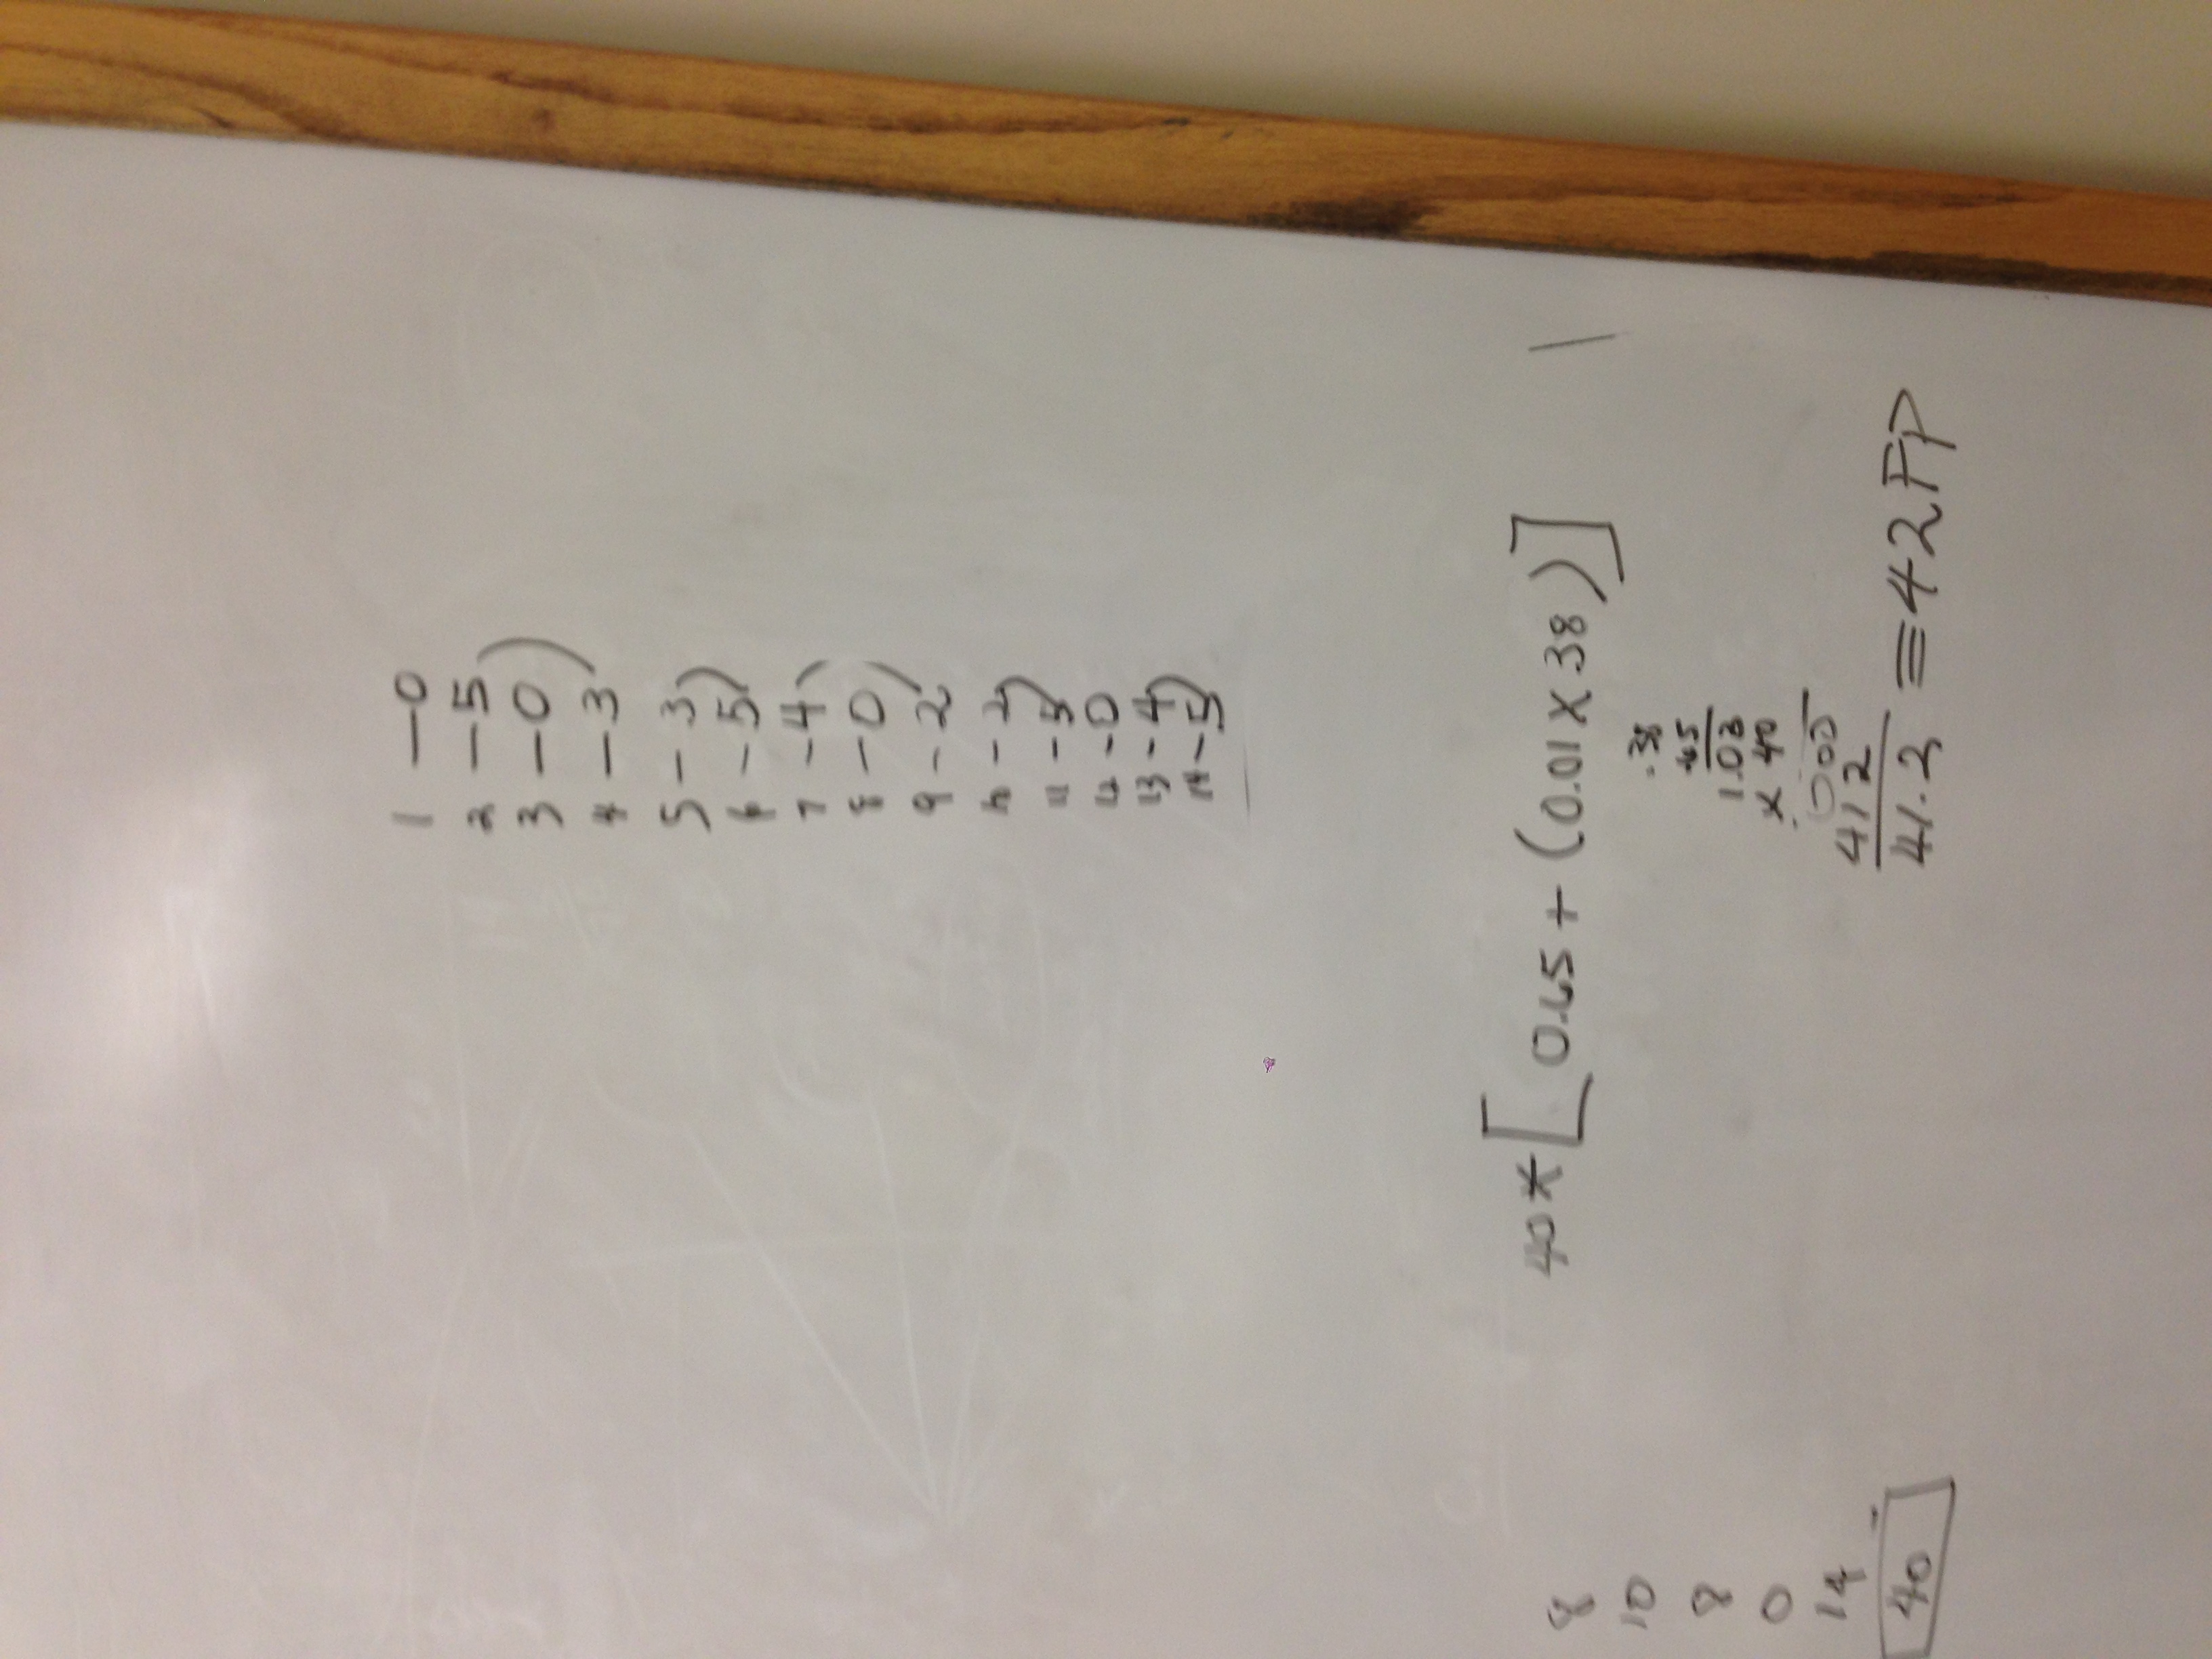 1 - 0
2 - 5
3 - 0
4 - 3
5 - 3
6 - 5
7 - 4
8 - 0
9 - 2
10 - 2
11 - 5
12 - 0
13 - 4
14 - 5
8
10
8
0
14
40
40 * [ 0.65 + (0.01 x 38 ) ]
.38
.65
1.03
x 40
000
412
41.2 ≡ 42 FP